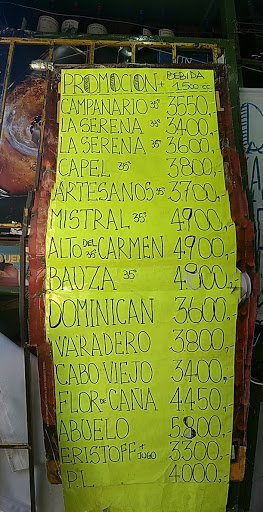 PROMOCION + BEBIDA 1500 cc
CAMPANARIO 35° 3550,-
LA SERENA 35° 3400,-
LA SERENA 3600,-
CAPEL 35° 3800,-
ARTESANOS 35° 3700,-
MISTRAL 35° 4900,-
ALTO DEL CARMEN 35° 4900,-
BAUZA 35° 4800,-
DOMINICAN 3600,-
VARADERO 3800,-
CABO VIEJO 3400,-
FLOR DE CAÑA 4.450,-
ABUELO 5800,-
ERISTOFF + JUGO 3300,-
P.L. 4000,-